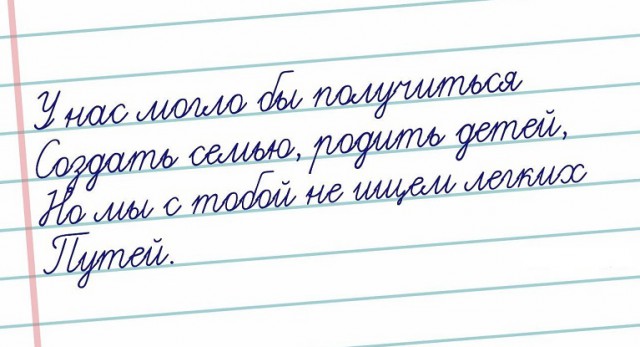 У нас могло бы получиться
Создать семью, родить детей,
Но мы с тобой не ищем легких
Путей.